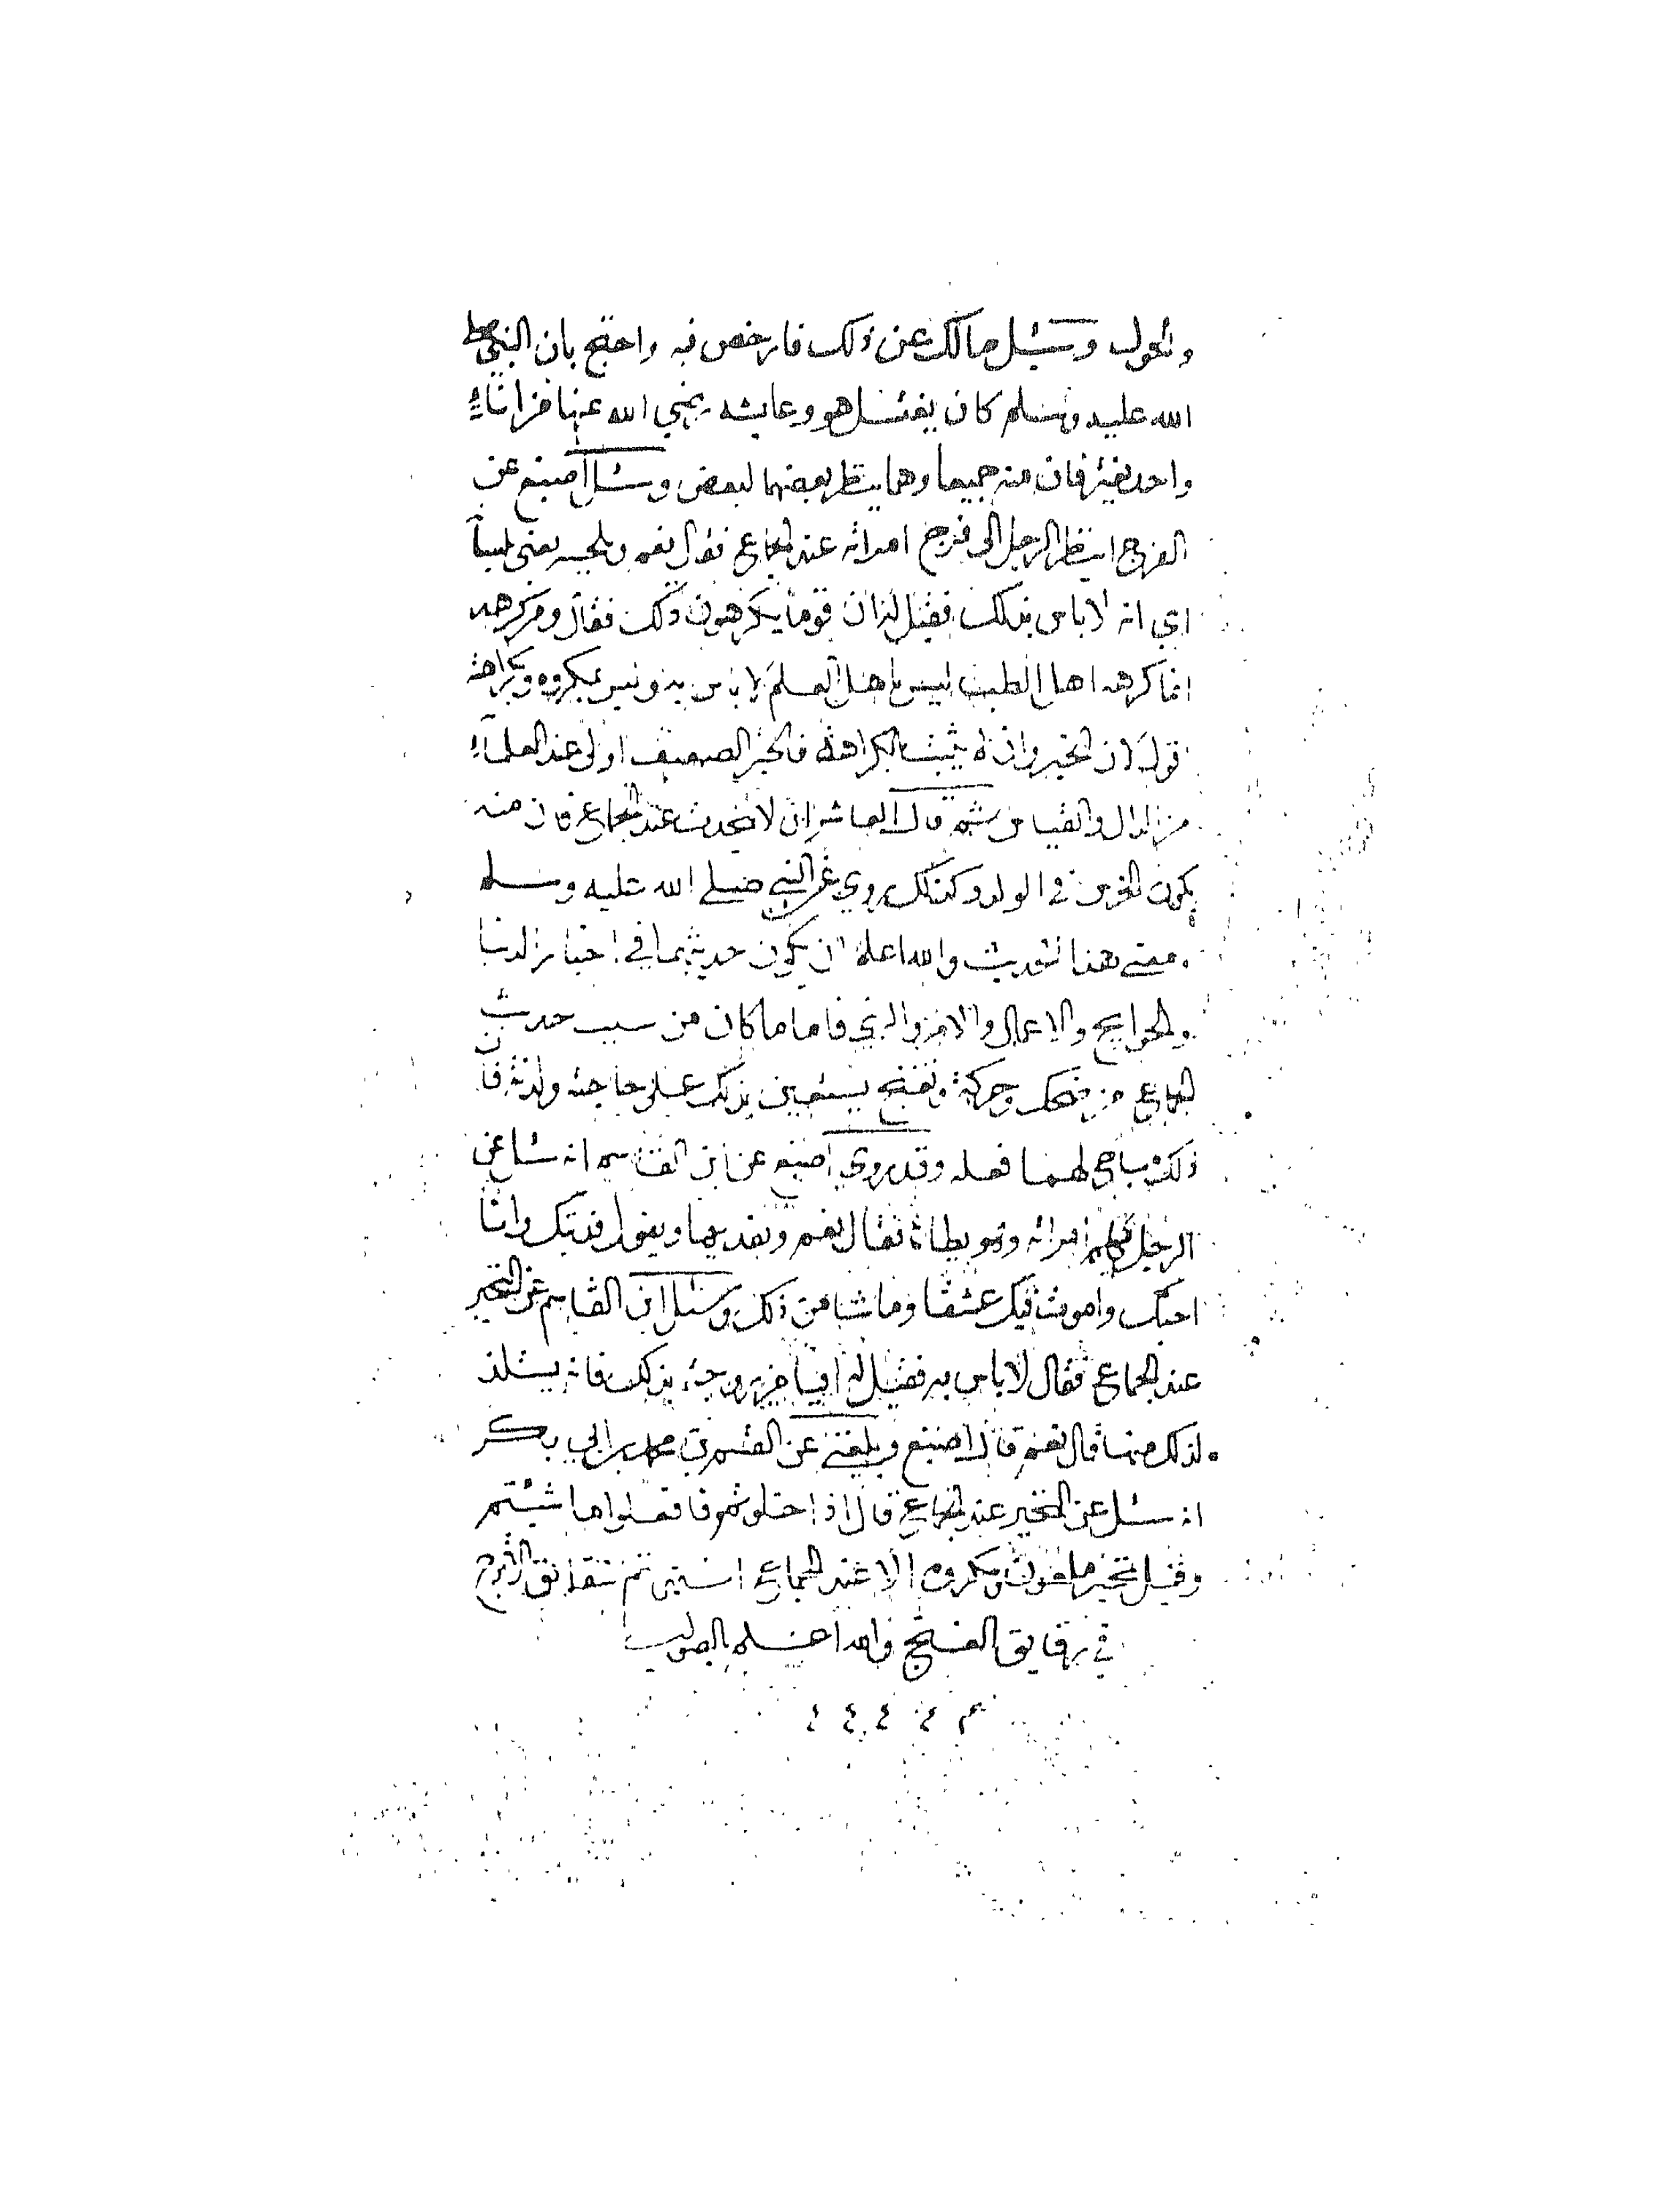 والحول وسئيل مالك عن ذلك فارخص فيه واحتج بان النبي صلى
الله عليه وسلم كان يغتسل هو وعايشه رضي الله عنها من اناءٍ
واحد يغترفان منه جميعا وهما ينظر بعضهما لبعض وسئل اصبغ عن
الفرج اينظر الرجل الى فرج امراته عند الجماع فقال نعم ويلحسه يعنى
اي انه لا باس بذلك فقيل له ان قوما يكرهون ذلك فقال ومن كرهه
انما كرهه اهل الطب ليس اهل العلم لا باس به وليس بمكروه وبكراهته
قول لان الخبر وان لم يثبت بالكراهة فالخبر الضعيف اولى عند العلمآء
من الراي والقياس ثم قال العاشر ان لا يتحدث عند الجماع فان منه
يكون الخرس في الولد وكذلك روي عن النبي صلى الله عليه وسلم
ومعنى هذا الحديث والله اعلم ان يكون حديثهما في اخبار الدنيا
والحوايج والاعمال والامر والنهي فاما ما كان من سبب حديث
الجماع من ضحك وحركة وتغنج يستعين بذلك على حاجته ولذته فان
ذلك مباح لهما فعله وقد روي اصبغ عن ابن القاسم انه سئل عن
الرجل يكلم امراته وهو يطاها فقال نعم ويفديها ويقول فديتك وانا
احبك واموت فيك عشقا وما شا من ذلك وسئل ابن القاسم عن النخير
عند الجماع فقال لا باس به فقيل له زوجته بذلك فانه يستلذ
لذلك منها قال نعم قال اصبغ وبلغني عن القسم بن محمد بن ابي بكر
انه سئل عن النخير عند الجماع قال اذا خلوتم فافعلوا ما شيئتم
وقيل مكروه الا عند الجماع انتهى
في رقايق الغنج والله اعلم بالصواب